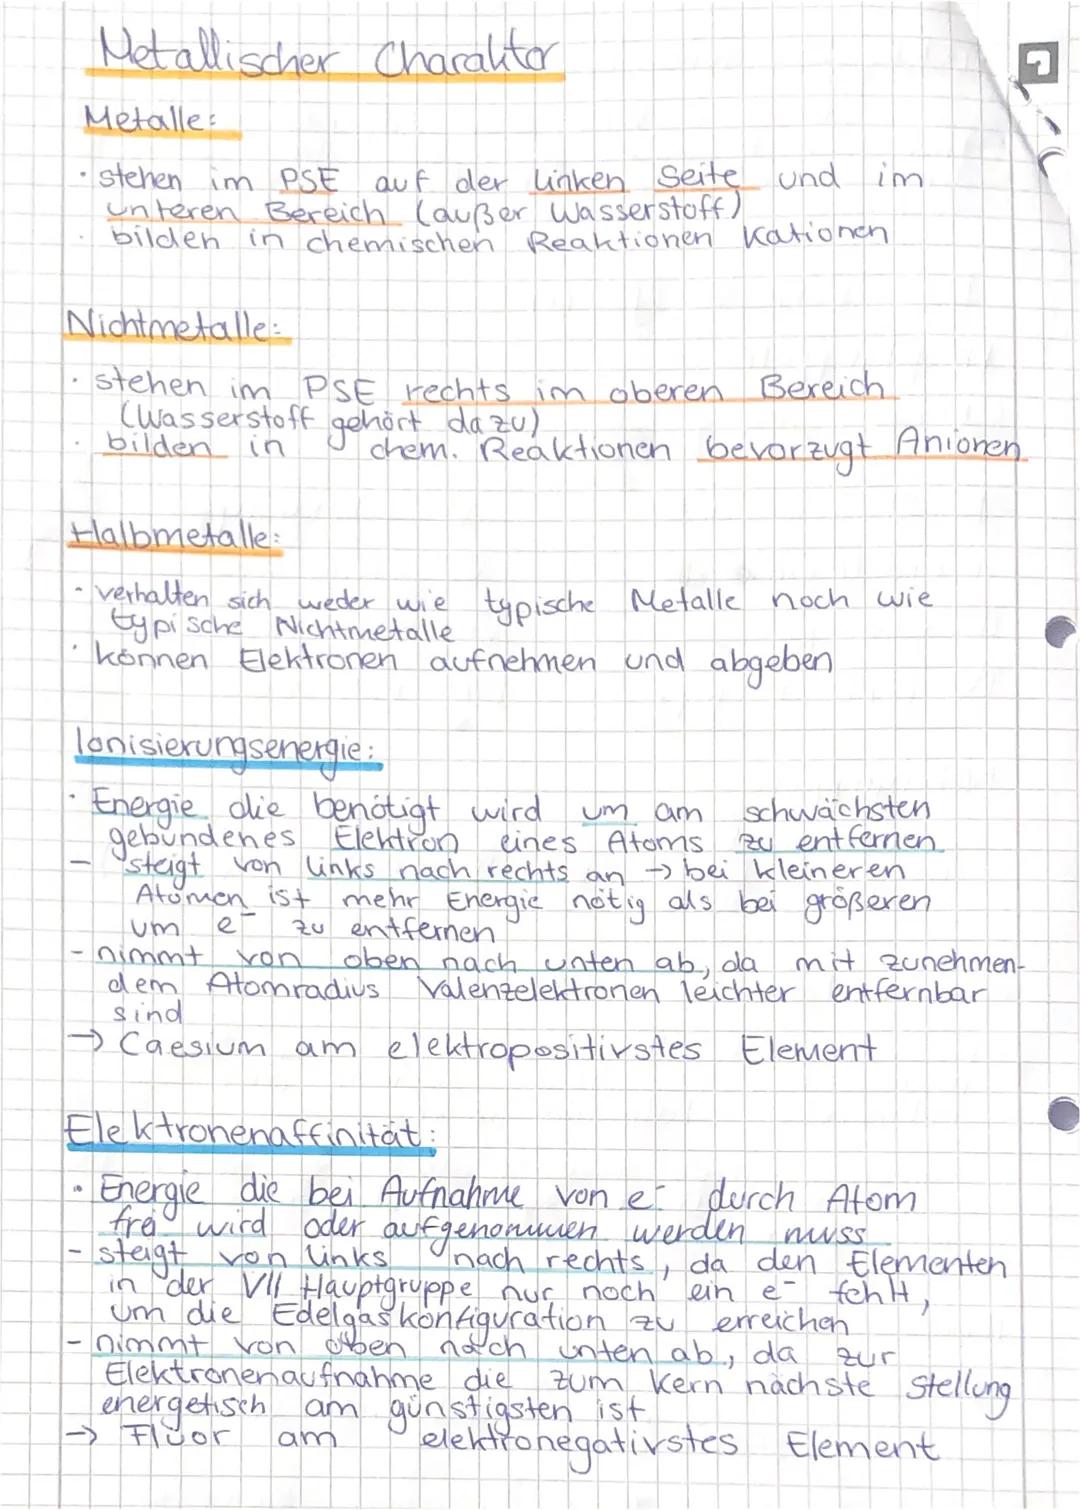 Metallischer Charakter
Metalle:
· stehen im PSE auf der linken Seite und im
unteren Bereich (außer Wasserstoff)
· bilden in chemischen Reaktionen Kationen
Nichtmetalle:
· stehen im PSE rechts im oberen Bereich
(Wasserstoff gehört dazu)
· bilden in chem. Reaktionen bevorzugt Anionen
Halbmetalle:
· verhalten sich weder wie typische Metalle noch wie
typische Nichtmetalle
· können Elektronen aufnehmen und abgeben
Ionisierungsenergie:
· Energie die benötigt wird um am schwächsten
gebundenes Elektron eines Atoms zu entfernen
- steigt von links nach rechts an → bei kleineren
Atomen ist mehr Energie nötig als bei größeren
um e⁻ zu entfernen
- nimmt von oben nach unten ab, da mit zunehmen-
dem Atomradius Valenzelektronen leichter entfernbar
sind
→ Caesium am elektropositivstes Element
Elektronenaffinität:
· Energie die bei Aufnahme von e⁻ durch Atom
frei wird oder aufgenommen werden muss
- steigt von links nach rechts, da den Elementen
in der VII Hauptgruppe nur noch ein e⁻ fehlt,
um die Edelgaskonfiguration zu erreichen
- nimmt von oben nach unten ab, da zur
Elektronenaufnahme die zum Kern nächste Stellung
energetisch am günstigsten ist
→ Fluor am elektronegativstes Element